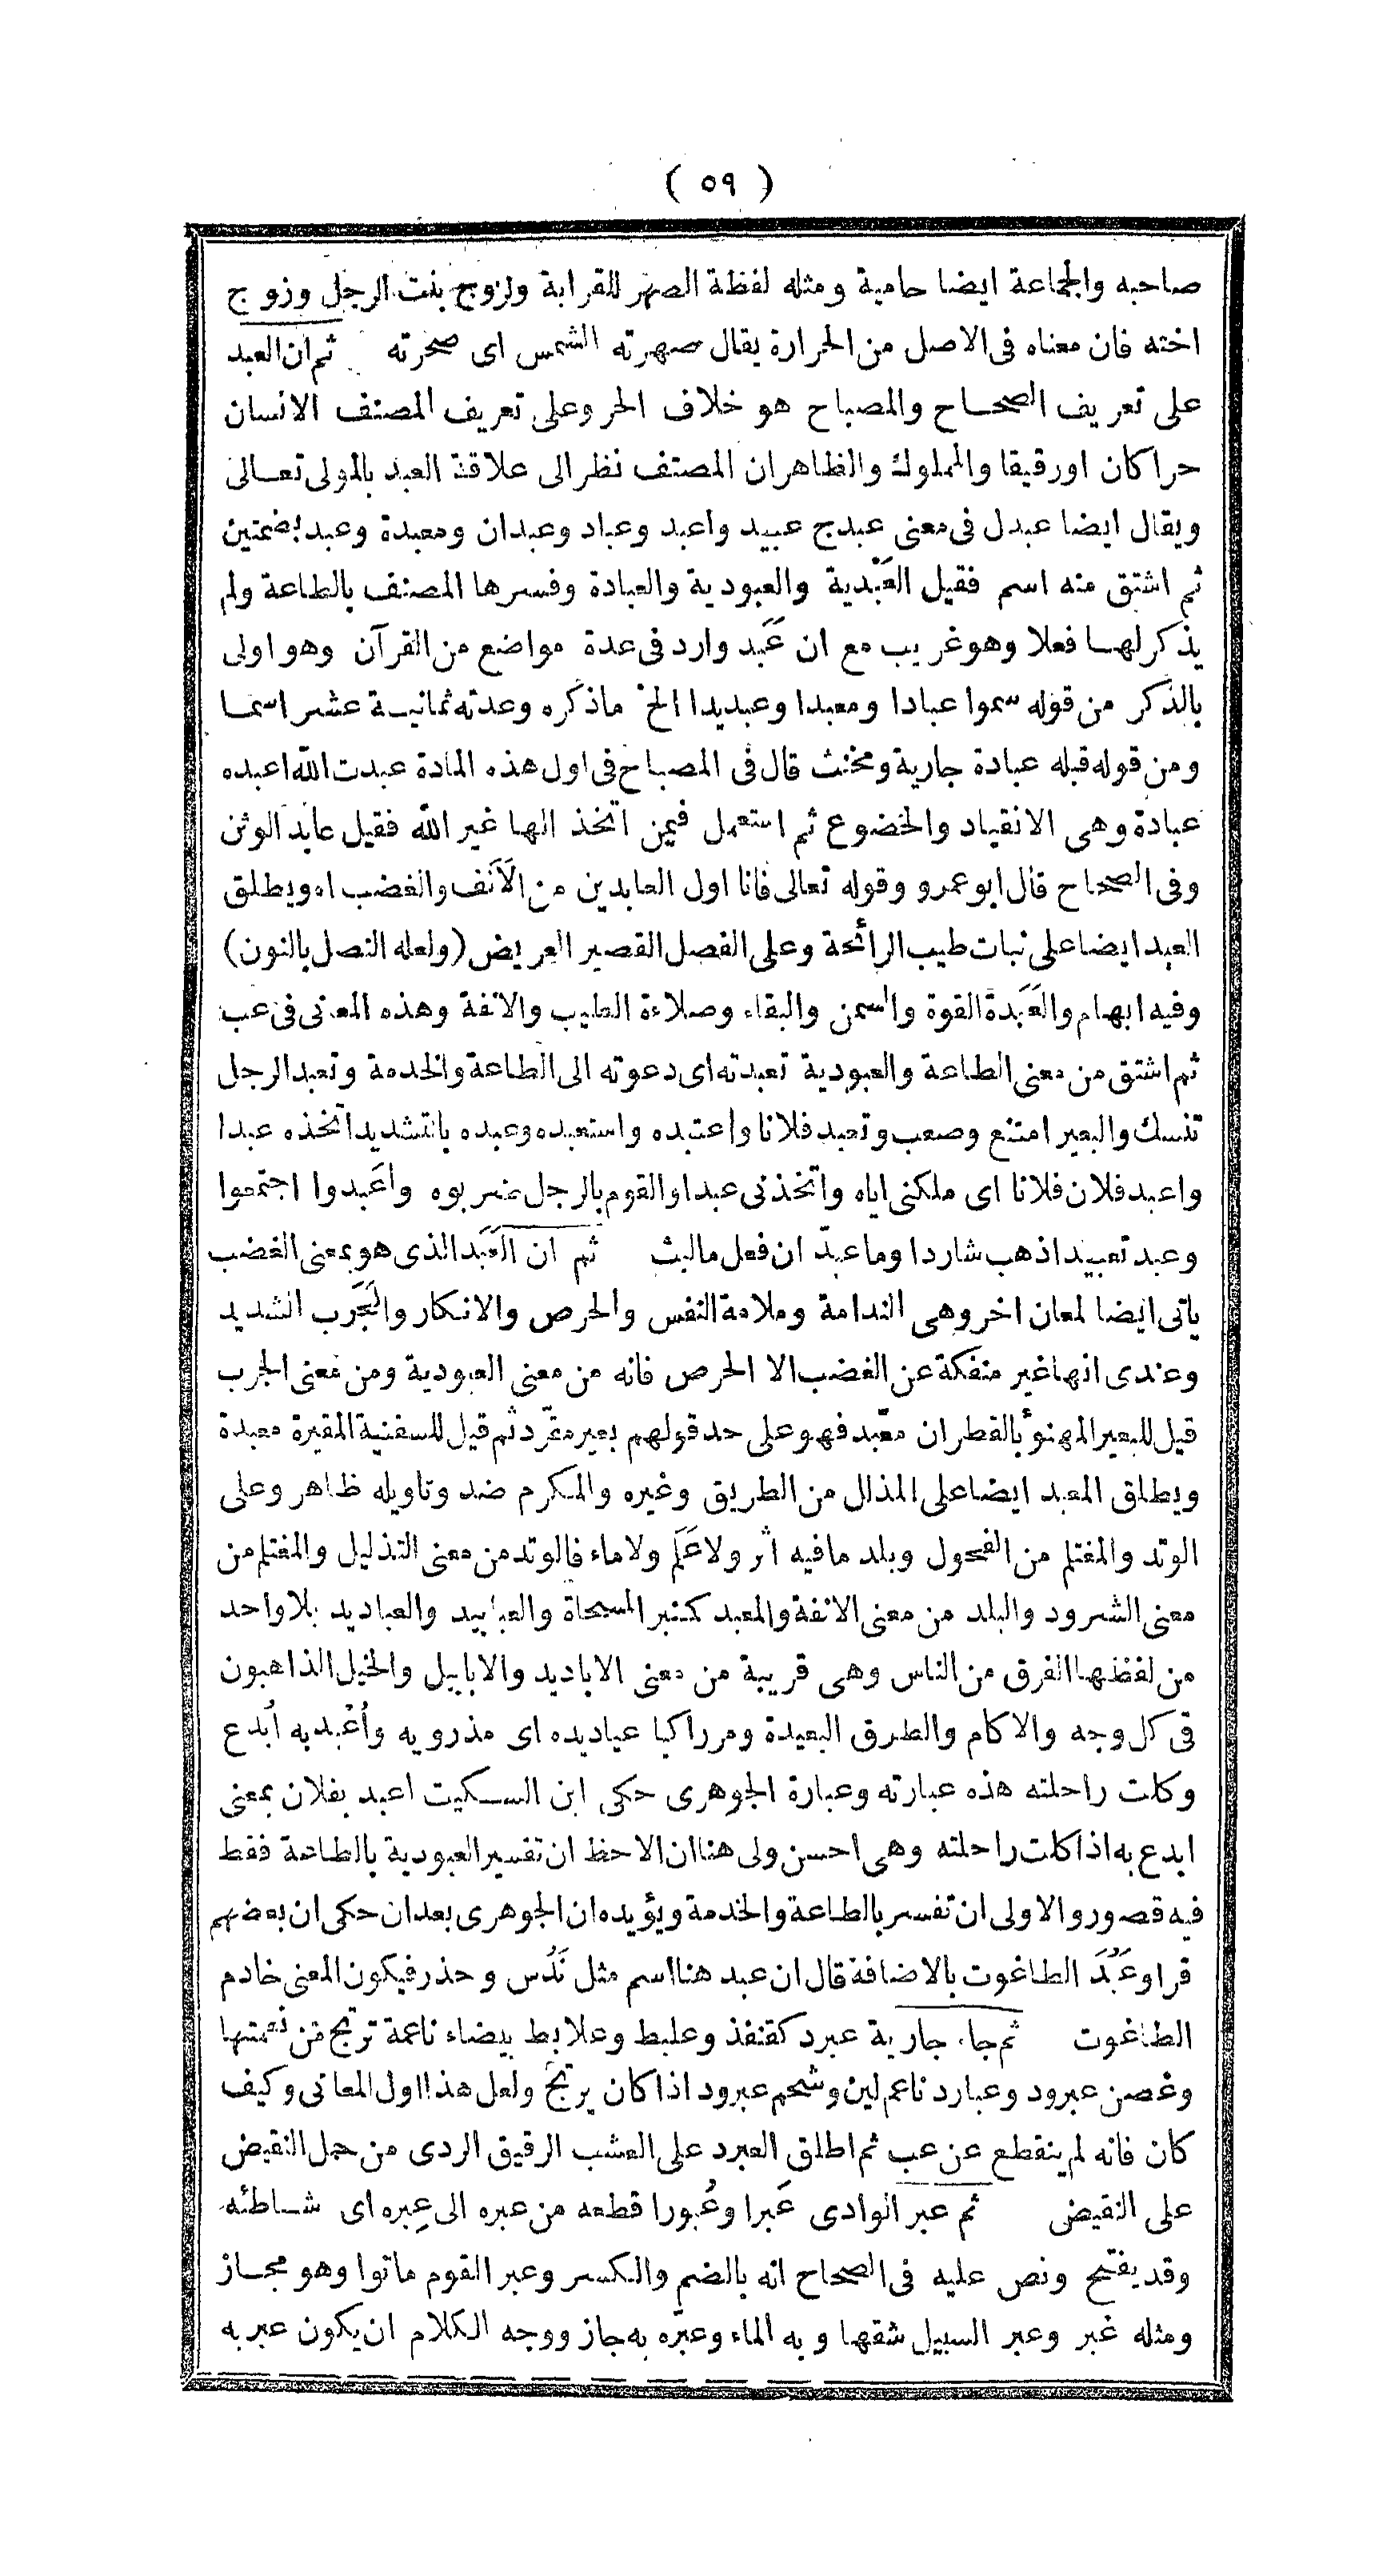 ( ٥٩ )
صاحبه والجماعة ايضا حامية ومثله لفظة الصهر للقرابة ولزوج بنت الرجل وزوج
اخته فان معناه فى الاصل من الحرارة يقال صهرته الشمس اى صحرته ثم ان العبد
على تعريف الصحاح والمصباح هو خلاف الحر وعلى تعريف المصنف الانسان
حرا كان اورقيقا والمملوك والظاهر ان المصنف نظر الى علاقة العبد بالمولى تعالى
ويقال ايضا عبدل فى معنى عبد ج عبيد واعبد وعباد وعبدان ومعبدة وعبد بضمتين
ثم اشتق منه اسم فقيل العَبْدية والعبودية والعبادة وفسرها المصنف بالطاعة ولم
يذكر لها فعلا وهو غريب مع ان عَبَد وارد فى عدة مواضع من القرآن وهو اولى
بالذكر من قوله سموا عبادا ومعبدا وعبديدا الخ ما ذكره وعدته ثمانية عشر اسما
ومن قوله قبله عبادة جارية ومخنث قال فى المصباح فى اول هذه المادة عبدت الله اعبده
عبادة وهى الانقياد والخضوع ثم استعمل فيمن اتخذ الها غير الله فقيل عابد الوثن
وفى الصحاح قال ابو عمرو وقوله تعالى فانا اول العابدين من الاَنَف والغضب اه ويطلق
العبد ايضا على نبات طيب الرائحة وعلى الفصل القصير العريض (ولعله النصل بالنون)
وفيه ابهام والعَبَدة القوة والسمن والبقاء وصلاءة الطيب والانفة وهذه المعانى فى عب
ثم اشتق من معنى الطاعة والعبودية تعبدته اى دعوته الى الطاعة والخدمة وتعبد الرجل
تنسك والبعير امتنع وصعب وتعبد فلانا واعتبده واستعبده وعبده بالتشديد اتخذه عبدا
واعبد فلان فلانا اى ملكنى اياه واتخذنى عبدا والقوم بالرجل ضربوه واَعبدوا اجتمعوا
وعبد تعبيدا ذهب شاردا وما عبدّ ان فعل ما لبث ثم ان العَبَد الذى هو بمعنى الغضب
ياتى ايضا لمعان اخر وهى الندامة وملامة النفس والحرص والانكار والجَرَب الشديد
وعندى انها غير منفكة عن الغضب الا الحرص فانه من معنى العبودية ومن معنى الجرب
قيل للبعير المهنوأ بالقطران معبّد فهو على حد قولهم بعير مقرّد ثم قيل للسفنية المقيرة معبدة
ويطلق المعبد ايضا على المذلل من الطريق وغيره والمكرم ضد وتاويله ظاهر وعلى
الوتد والمغتلم من الفحول وبلد ما فيه اثر ولا عَلَم ولا ماء فالوتد من معنى التذليل والمغتلم من
معنى الشرود والبلد من معنى الانفة والمعبد كمنبر المسحاة والعبابيد والعباديد بلا واحد
من لفظها الفرق من الناس وهى قريبة من معنى الاباديد والابابيل والخيل الذاهبون
فى كل وجه والاكام والطرق البعيدة ومر راكبا عباديده اى مذرويه وأُعْبد به أُبدع
وكلت راحلته هذه عبارته وعبارة الجوهرى حكى ابن السكيت اعبد بفلان بمعنى
ابدع به اذا كلت راحلته وهى احسن ولى هنا ان الاحظ ان تفسير العبودية بالطاعة فقط
فيه قصور والاولى ان تفسر بالطاعة والخدمة ويؤيده ان الجوهرى بعد ان حكى ان بعضهم
قرا وعَبُدَ الطاغوت بالاضافة قال ان عبد هنا اسم مثل نَدُس وحذر فيكون المعنى خادم
الطاغوت ثم جاء جارية عبرد كقنفذ وعلبط وعلابط بيضاء ناعمة ترتج من نعمتها
وغصن عبرود وعبارد ناعم لين وشحم عبرود اذا كان يرتج ولعل هذا اول المعانى وكيف
كان فانه لم ينقطع عن عب ثم اطلق العبرد على العشب الرقيق الردى من حمل النقيض
على النقيض ثم عبر الوادى عَبرا وعُبورا قطعه من عبره الى عِبره اى شاطئه
وقد يفتح ونص عليه فى الصحاح انه بالضم والكسر وعبر القوم ماتوا وهو مجاز
ومثله غبر وعبر السبيل شقها وبه الماء وعبّره به جاز ووجه الكلام ان يكون عبر به